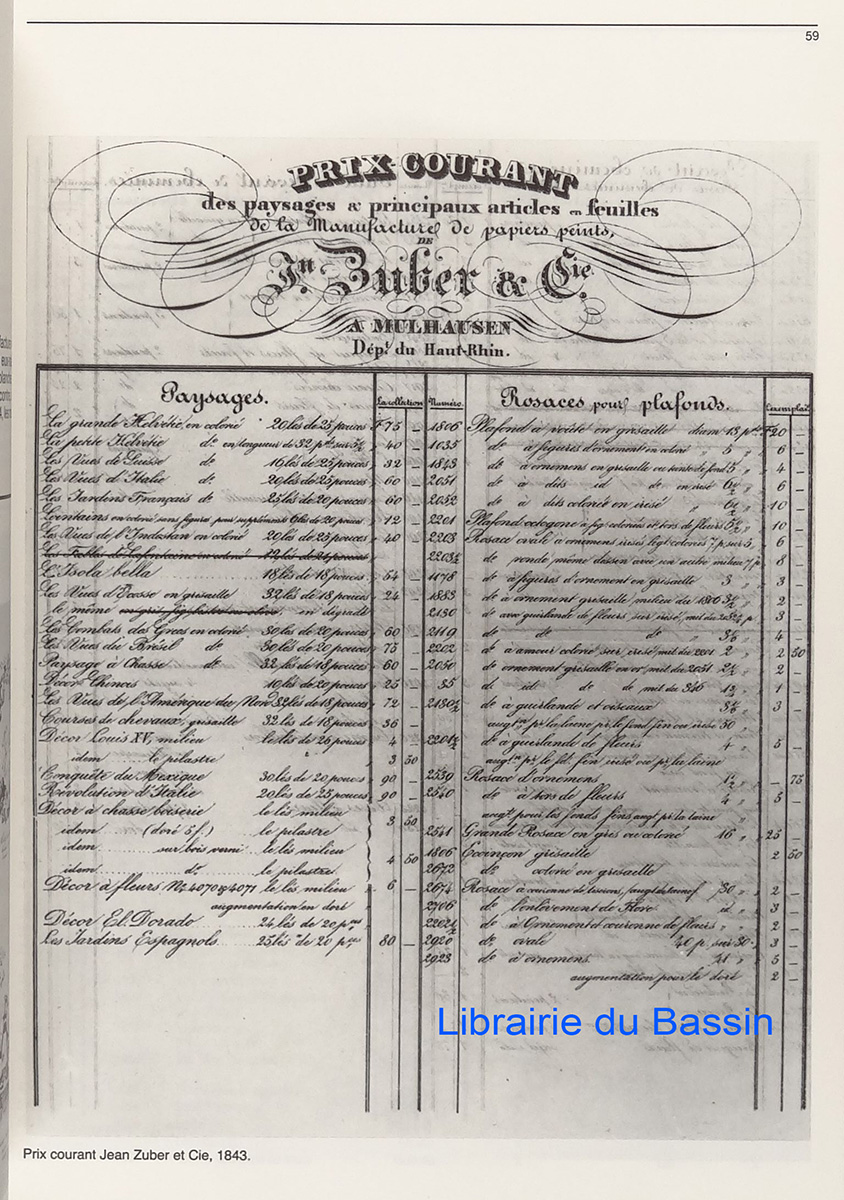 59
PRIX-COURANT
des paysages & principaux articles en feuilles
de la Manufacture de papiers peints,
DE
Jn Zuber & Cie.
A MULHAUSEN
Dépt. du Haut-Rhin.
Paysages. La collection
La grande Helvétie, en colorié 20 lés de 25 pouces F 75 —
La petite Helvétie do en longueur de 32 pces sur 5½ 40 —
Les Vues de Suisse do 16 lés de 25 pouces 32 —
Les Vues d'Italie do 20 lés de 25 pouces 60 —
Les Jardins Français do 25 lés de 20 pouces 60 —
Lointains en colorié sans figures pour supplément 6 lés de 20 pouces 12 —
Les Vues de l'Indostan en colorié 20 lés de 25 pouces 40 —
Les Fables de Lafontaine en colorié 12 lés de 21 pouces
L'Isola bella 18 lés de 18 pouces 54 —
Les Vues d'Ecosse en grisaille 32 lés de 18 pouces 24 —
le même en dégradé
Les Combats des Grecs en colorié 30 lés de 20 pouces 60 —
Les Vues du Brésil do 30 lés de 20 pouces 75 —
Paysage à Chasse do 32 lés de 18 pouces 60 —
Décor Chinois 10 lés de 20 pouces 25 —
Les Vues de l'Amérique du Nord 32 lés de 18 pouces 72 —
Courses de chevaux, grisaille 32 lés de 18 pouces 36 —
Décor Louis XV, milieu le lés de 26 pouces 4 —
idem le pilastre 3 50
Conquête du Mexique 30 lés de 20 pouces 90 —
Révolution d'Italie 20 lés de 25 pouces 90 —
Décor à chasse boiserie le lés milieu
idem (doré 5 f.) le pilastre 3 50
idem sur bois verni le lés milieu
idem do le pilastre 4 50
Décor à fleurs Nos 4070 & 4071 le lés milieu 6 —
augmentation en doré
Décor El. Dorado 24 lés de 20 pces
Les Jardins Espagnols 25 lés de 20 pces 80 —
Numéro. Rosaces pour plafonds. L'exemplaire
1806 Plafond à voûte en grisaille diam 13 pces F 20 —
1035 do à figures d'ornement en colorié 5 " 6 —
1843 do à ornemens en grisaille 5 " 4 —
2031 do à dits id do en irisé 6½ " 6 —
2032 do à dits colorié en irisé 6½ " 10 —
2201 Plafond octogone à fig. coloriées et tors de fleurs 10 —
2203 Rosace ovale à ornemens irisés 6 —
2203½ do ronde même dessin avec un autre milieu 8 —
1178 do à figures d'ornement en grisaille 3 " 3 —
1883 do à ornement grisaille milieu du 1806 3½ " 2 —
2130 do avec guirlande de fleurs sur irisé 3 —
2119 do do do 3½ " 4 —
2202 do à amour colorié sur irisé mil du 2201 2 " 2 50
2030 do ornement grisaille en or mil du 2031 2½ " 2 —
35 do id do do mil du 1½ " 1 —
2180½ do à guirlande et oiseaux 3½ " 3 —
2201½ do à guirlande de fleurs 4 " 5 —
2539 Rosace d'ornemens 1½ " — 75
2540 do à tors de fleurs 4 " 5 —
2541 Grande Rosace en gris ou colorié 16 " 25 —
1806 Ecoinçon grisaille 2 50
2672 do colorié en grisaille
2674 Rosace 30 " 2 —
2706 do l'enlèvement de Flore id " 3 —
2202½ do à Ornement et couronne de fleurs " 2 —
2920 do ovale 40 p. sur 30 3 —
2923 do à ornemens " 5 —
augmentation pour le doré 2 —
Librairie du Bassin
Prix courant Jean Zuber et Cie, 1843.